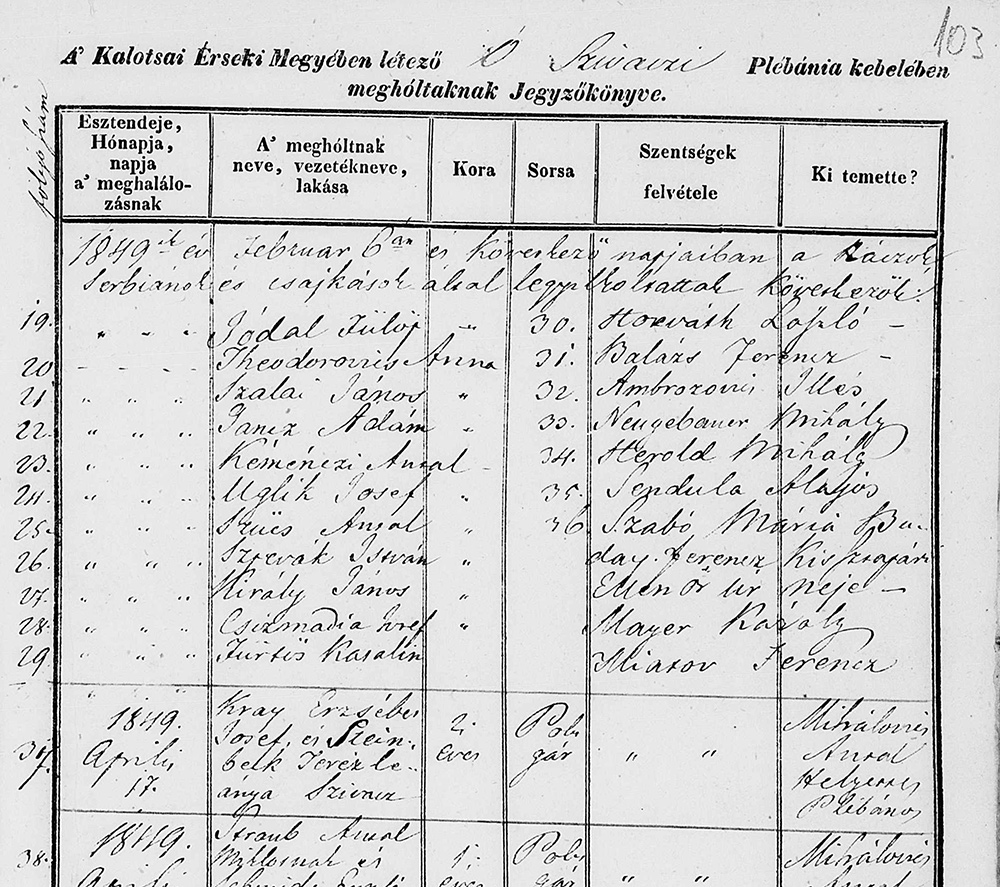 103
A' Kalotsai Érseki Megyében létező Ó Szivaczi Plébánia kebelében
meghóltaknak Jegyzőkönyve.
folyó szám
Esztendeje, Hónapja, napja a' meghalálozásnak
A' meghóltnak neve, vezetékneve, lakása
Kora
Sorsa
Szentségek felvétele
Ki temette?
1849ik év Februar 6án és következő napjaiban a Ráczok,
Serbianok és csajkások által legyilkoltattak következők:
19. " " " Jódal Fülöp " 30. Horváth László –
20 - - - - Theodorovics Anna 31. Balázs Ferencz –
21 " " " Szalai János " 32. Ambrozovics Illés
22. " " " Jancz Ádám " 33. Neugebauer Mihály
23. " " " Keménczi Antal - 34. Herold Mihály
24. " " " Uglik Josef " 35. Sendula Alajos
25. " " " Szücs Antal " 36 Szabó Mária Bu-
26. " " " István " day Ferencz
27. " " " Király János " Ellenőr úr neje –
28. " " " Csizmadia " Mayer Károly
29 " " " Katalin Ferencz
37. 1849. Aprilis 17.
Kray Erzsébet
Josef és Stein-
beck Teréz le-
ánya Szivacz
2 éves
Pol-
gár
" "
Mihálovics
Antal
Helyettes
Plébános
38. 1849. Aprilis
Straub Antal
Miklosnak és
1 éves
Pol-
gár
" "
Mihálovics
Antal